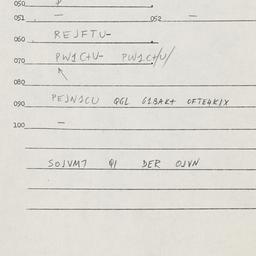 050 φ
051 — 052 —
060 REJFTU-
070 PW1C+U- PW1C+/U/
080
090 PEJNJCU QGL G1BAK+ OFTE4K/X
100 —
SOJVM7 φI DER OJVN